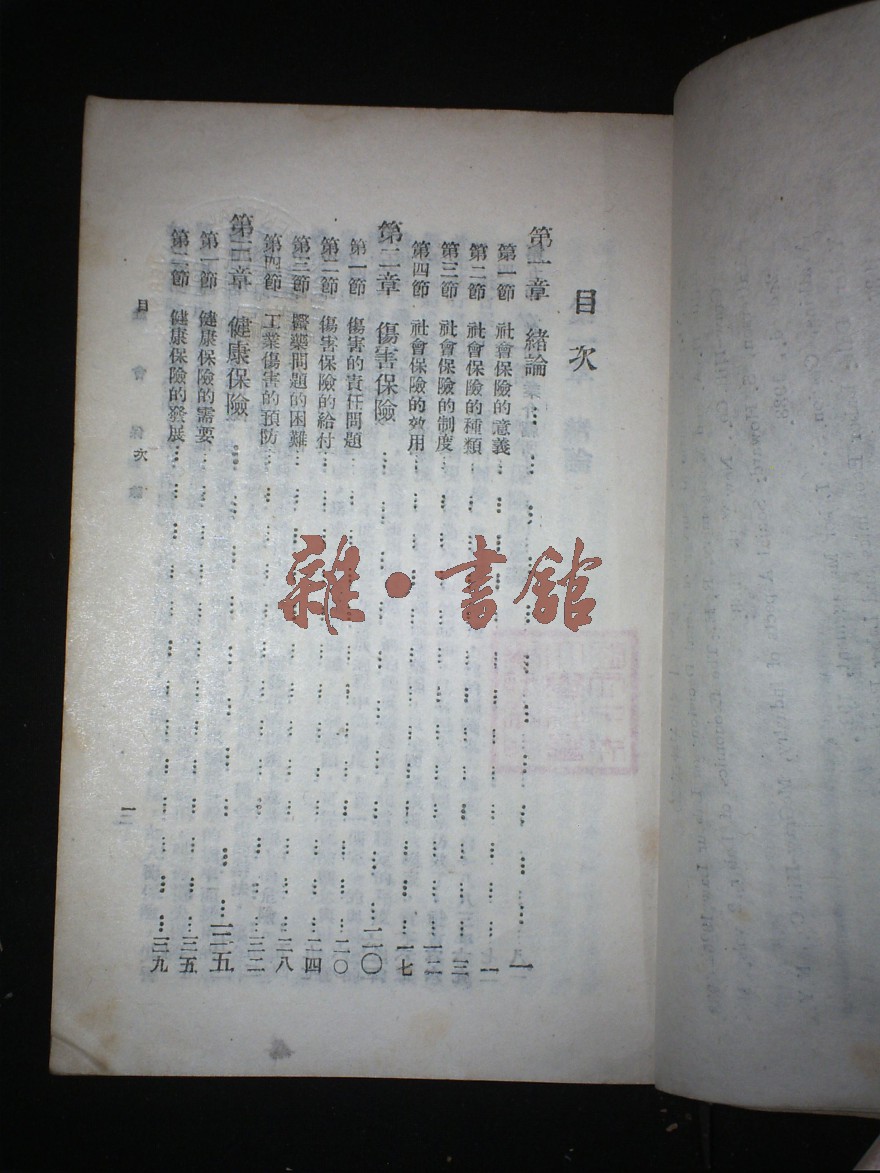 目次
第一章 緒論……一
第一節 社會保險的意義……一
第二節 社會保險的種類……三
第三節 社會保險的制度……一二
第四節 社會保險的效用……一七
第二章 傷害保險……二〇
第一節 傷害的責任問題……二〇
第二節 傷害保險的給付……二四
第三節 醫藥問題的困難……二八
第四節 工業傷害的預防……三二
第三章 健康保險……三五
第一節 健康保險的需要……三五
第二節 健康保險的發展……三九
目次
一
雜·書館